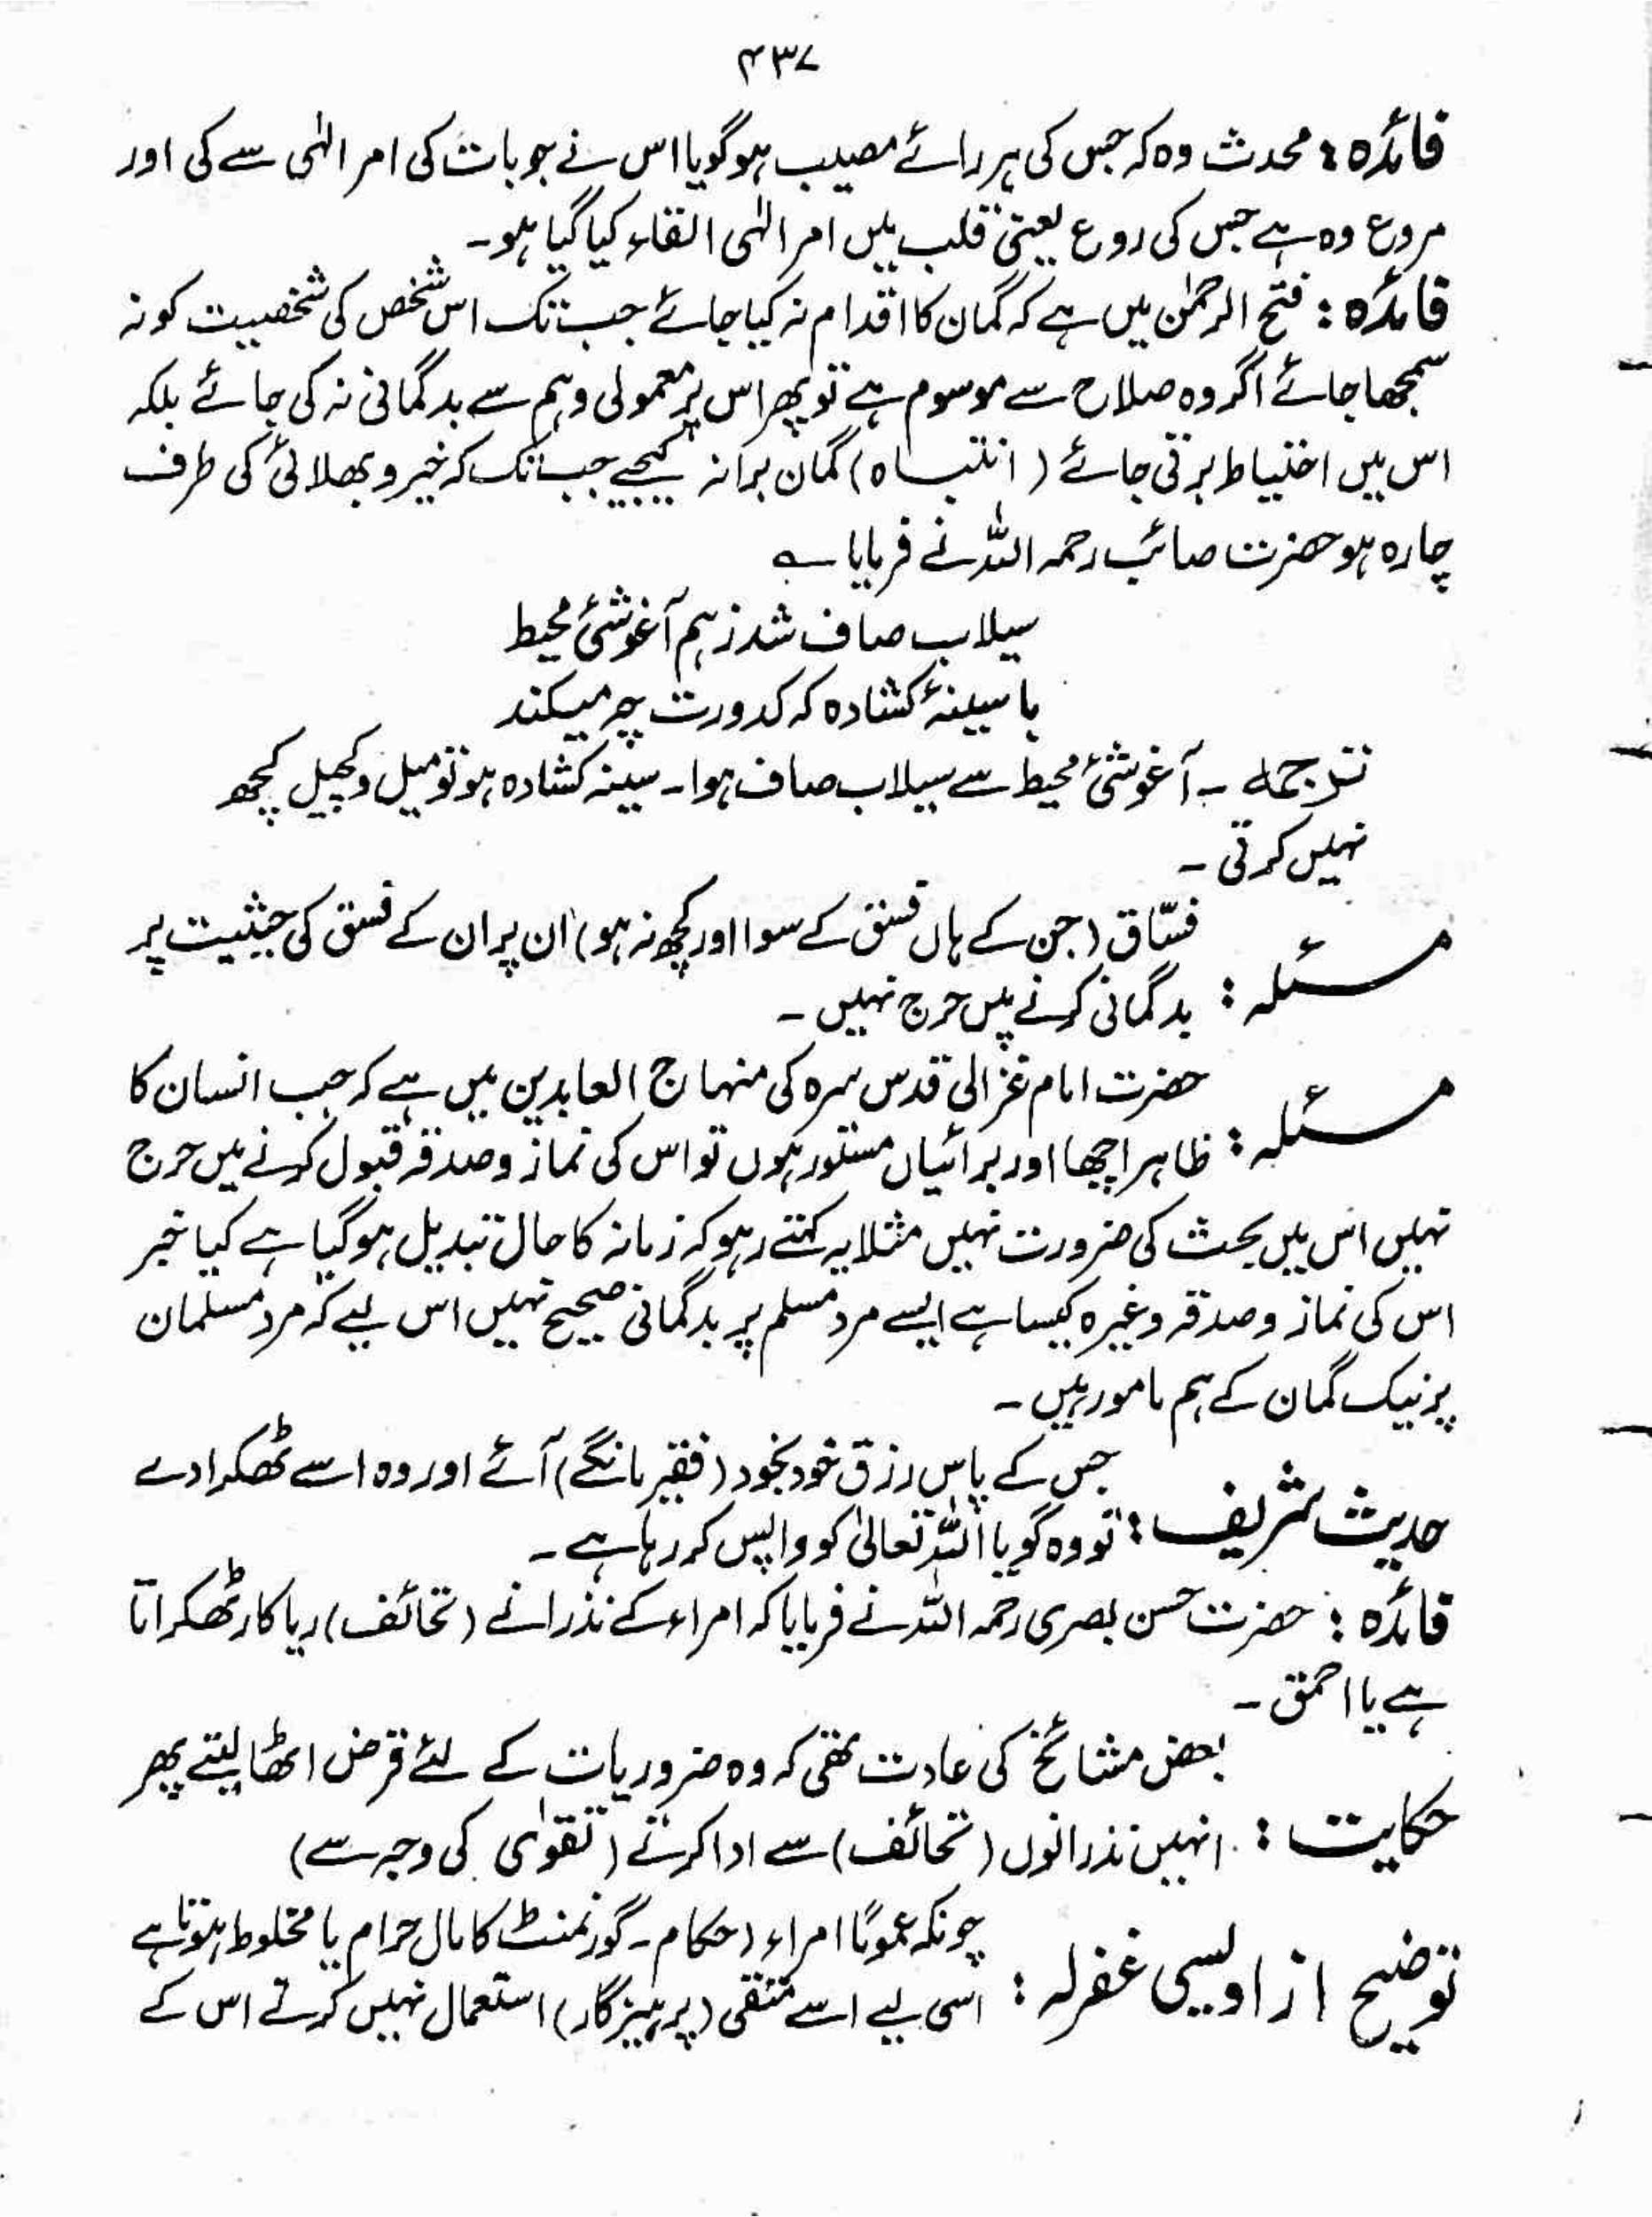 ۴۳۷
فائدہ : محدث وہ کہ جس کی ہر رائے مصیب ہو گویا اس نے جو بات کی امر الٰہی سے کی اور
مروع وہ ہے جس کی روع یعنی قلب میں امر الٰہی القاء کیا گیا ہو۔
فائدہ : فتح الرحمٰن میں ہے کہ گمان کا اقدام نہ کیا جائے جب تک اس شخص کی شخصیت کو نہ
سمجھا جائے اگر وہ صلاح سے موسوم ہے تو پھر اس پر معمولی وہم سے بدگمانی نہ کی جائے بلکہ
اس میں احتیاط برتی جائے ( انتباہ ) گمان برا نہ کیجیے جب تک کہ خیر و بھلائی کی طرف
چارہ ہو حضرت صائب رحمہ اللہ نے فرمایا ؎
سیلاب صاف شد ز ہم آغوشئ محیط
با سینۂ کشادہ کہ کدورت چہ میکند
ترجمہ ۔ آغوشئ محیط سے سیلاب صاف ہوا ۔ سینہ کشادہ ہو تو میل و کچیل کچھ
نہیں کرتی ۔
فسّاق (جن کے ہاں فسق کے سوا اور کچھ نہ ہو) ان پر ان کے فسق کی حیثیت پر
مسئلہ : بدگمانی کرنے میں حرج نہیں ۔
حضرت امام غزالی قدس سرہ کی منہاج العابدین میں ہے کہ جب انسان کا
مسئلہ : ظاہر اچھا اور برائیاں مستور ہوں تو اس کی نماز و صدقہ قبول کرنے میں حرج
نہیں اس میں بحث کی ضرورت نہیں مثلا یہ کہتے رہو کہ زمانہ کا حال تبدیل ہو گیا ہے کیا خبر
اس کی نماز و صدقہ وغیرہ کیسا ہے ایسے مرد مسلم پر بدگمانی صحیح نہیں اس لیے کہ مرد مسلمان
پر نیک گمان کے ہم مامور ہیں ۔
جس کے پاس رزق خود بخود (فقیر مانگے) آئے اور وہ اسے ٹھکرا دے
حدیث شریف : تو وہ گویا اللہ تعالیٰ کو واپس کر رہا ہے ۔
فائدہ : حضرت حسن بصری رحمہ اللہ نے فرمایا کہ امراء کے نذرانے (تحائف) ریاکار ٹھکراتا
ہے یا احمق ۔
بعض مشائخ کی عادت تھی کہ وہ ضروریات کے لئے قرض اٹھا لیتے پھر
حکایت : انہیں نذرانوں (تحائف) سے ادا کرتے (تقوٰی کی وجہ سے)
چونکہ عموماً امراء (حکام ۔ گورنمنٹ کا مال حرام یا مخلوط ہوتا ہے
توضیح از اویسی غفرلہ : اسی لیے اسے متقی (پرہیزگار) استعمال نہیں کرتے اس کے